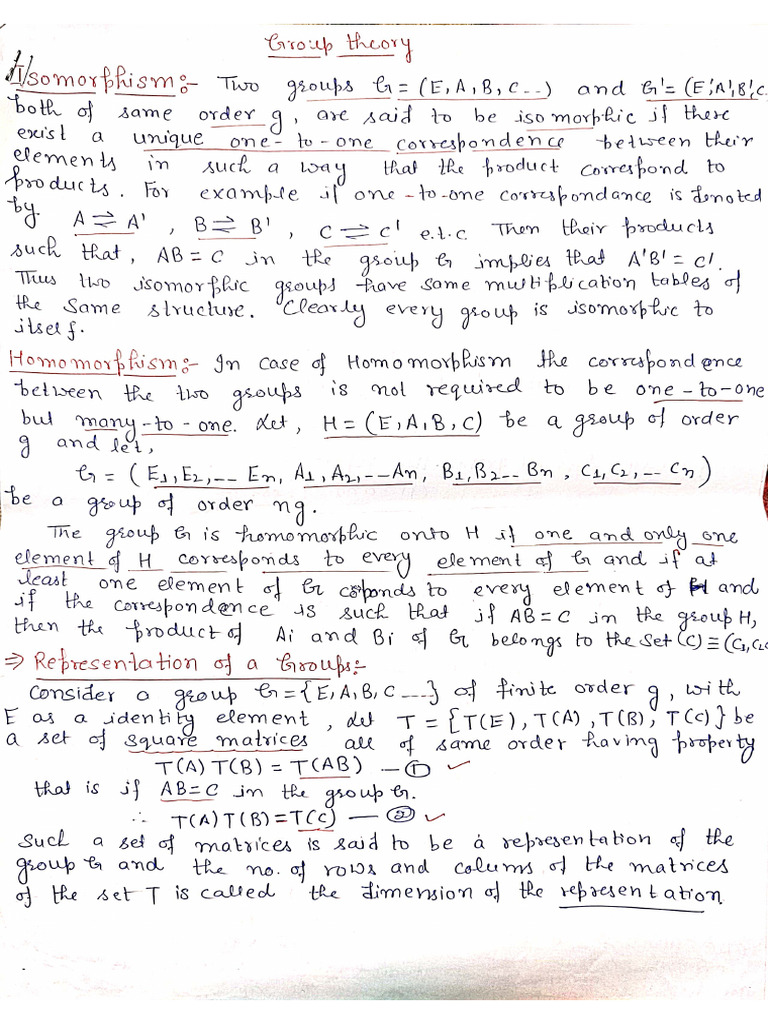 Group theory
Isomorphism:- Two groups G = (E, A, B, C --) and G' = (E', A', B', C
both of same order g, are said to be isomorphic if there
exist a unique one-to-one correspondence between their
elements in such a way that the product correspond to
products. For example if one-to-one correspondance is denoted
by A ⇌ A' , B ⇌ B' , C ⇌ C' e.t.c Then their products
such that, AB = C in the group G implies that A'B' = C'.
Thus two isomorphic groups have same multiplication tables of
the same structure. Clearly every group is isomorphic to
itself.
Homomorphism:- In case of Homomorphism the correspondence
between the two groups is not required to be one-to-one
but many-to-one. Let, H = (E, A, B, C) be a group of order
g and let,
G = ( E1, E2, -- En, A1, A2, -- An, B1, B2 -- Bn, C1, C2, -- Cn)
be a group of order ng.
The group G is homomorphic onto H if one and only one
element of H corresponds to every element of G and if at
least one element of G coponds to every element of H and
if the correspondence is such that if AB = C in the group H,
then the product of Ai and Bi of G belongs to the set (C) ≡ (C1, C2
⇒ Representation of a Groups:-
Consider a group G = {E, A, B, C ---} of finite order g, with
E as a identity element, let T = {T(E), T(A), T(B), T(C)} be
a set of square matrices all of same order having property
T(A) T(B) = T(AB) — ① ✓
that is if AB = C in the group G.
∴ T(A) T(B) = T(C) — ② ✓
Such a set of matrices is said to be a representation of the
group G and the no. of rows and colums of the matrices
of the set T is called the dimension of the representation